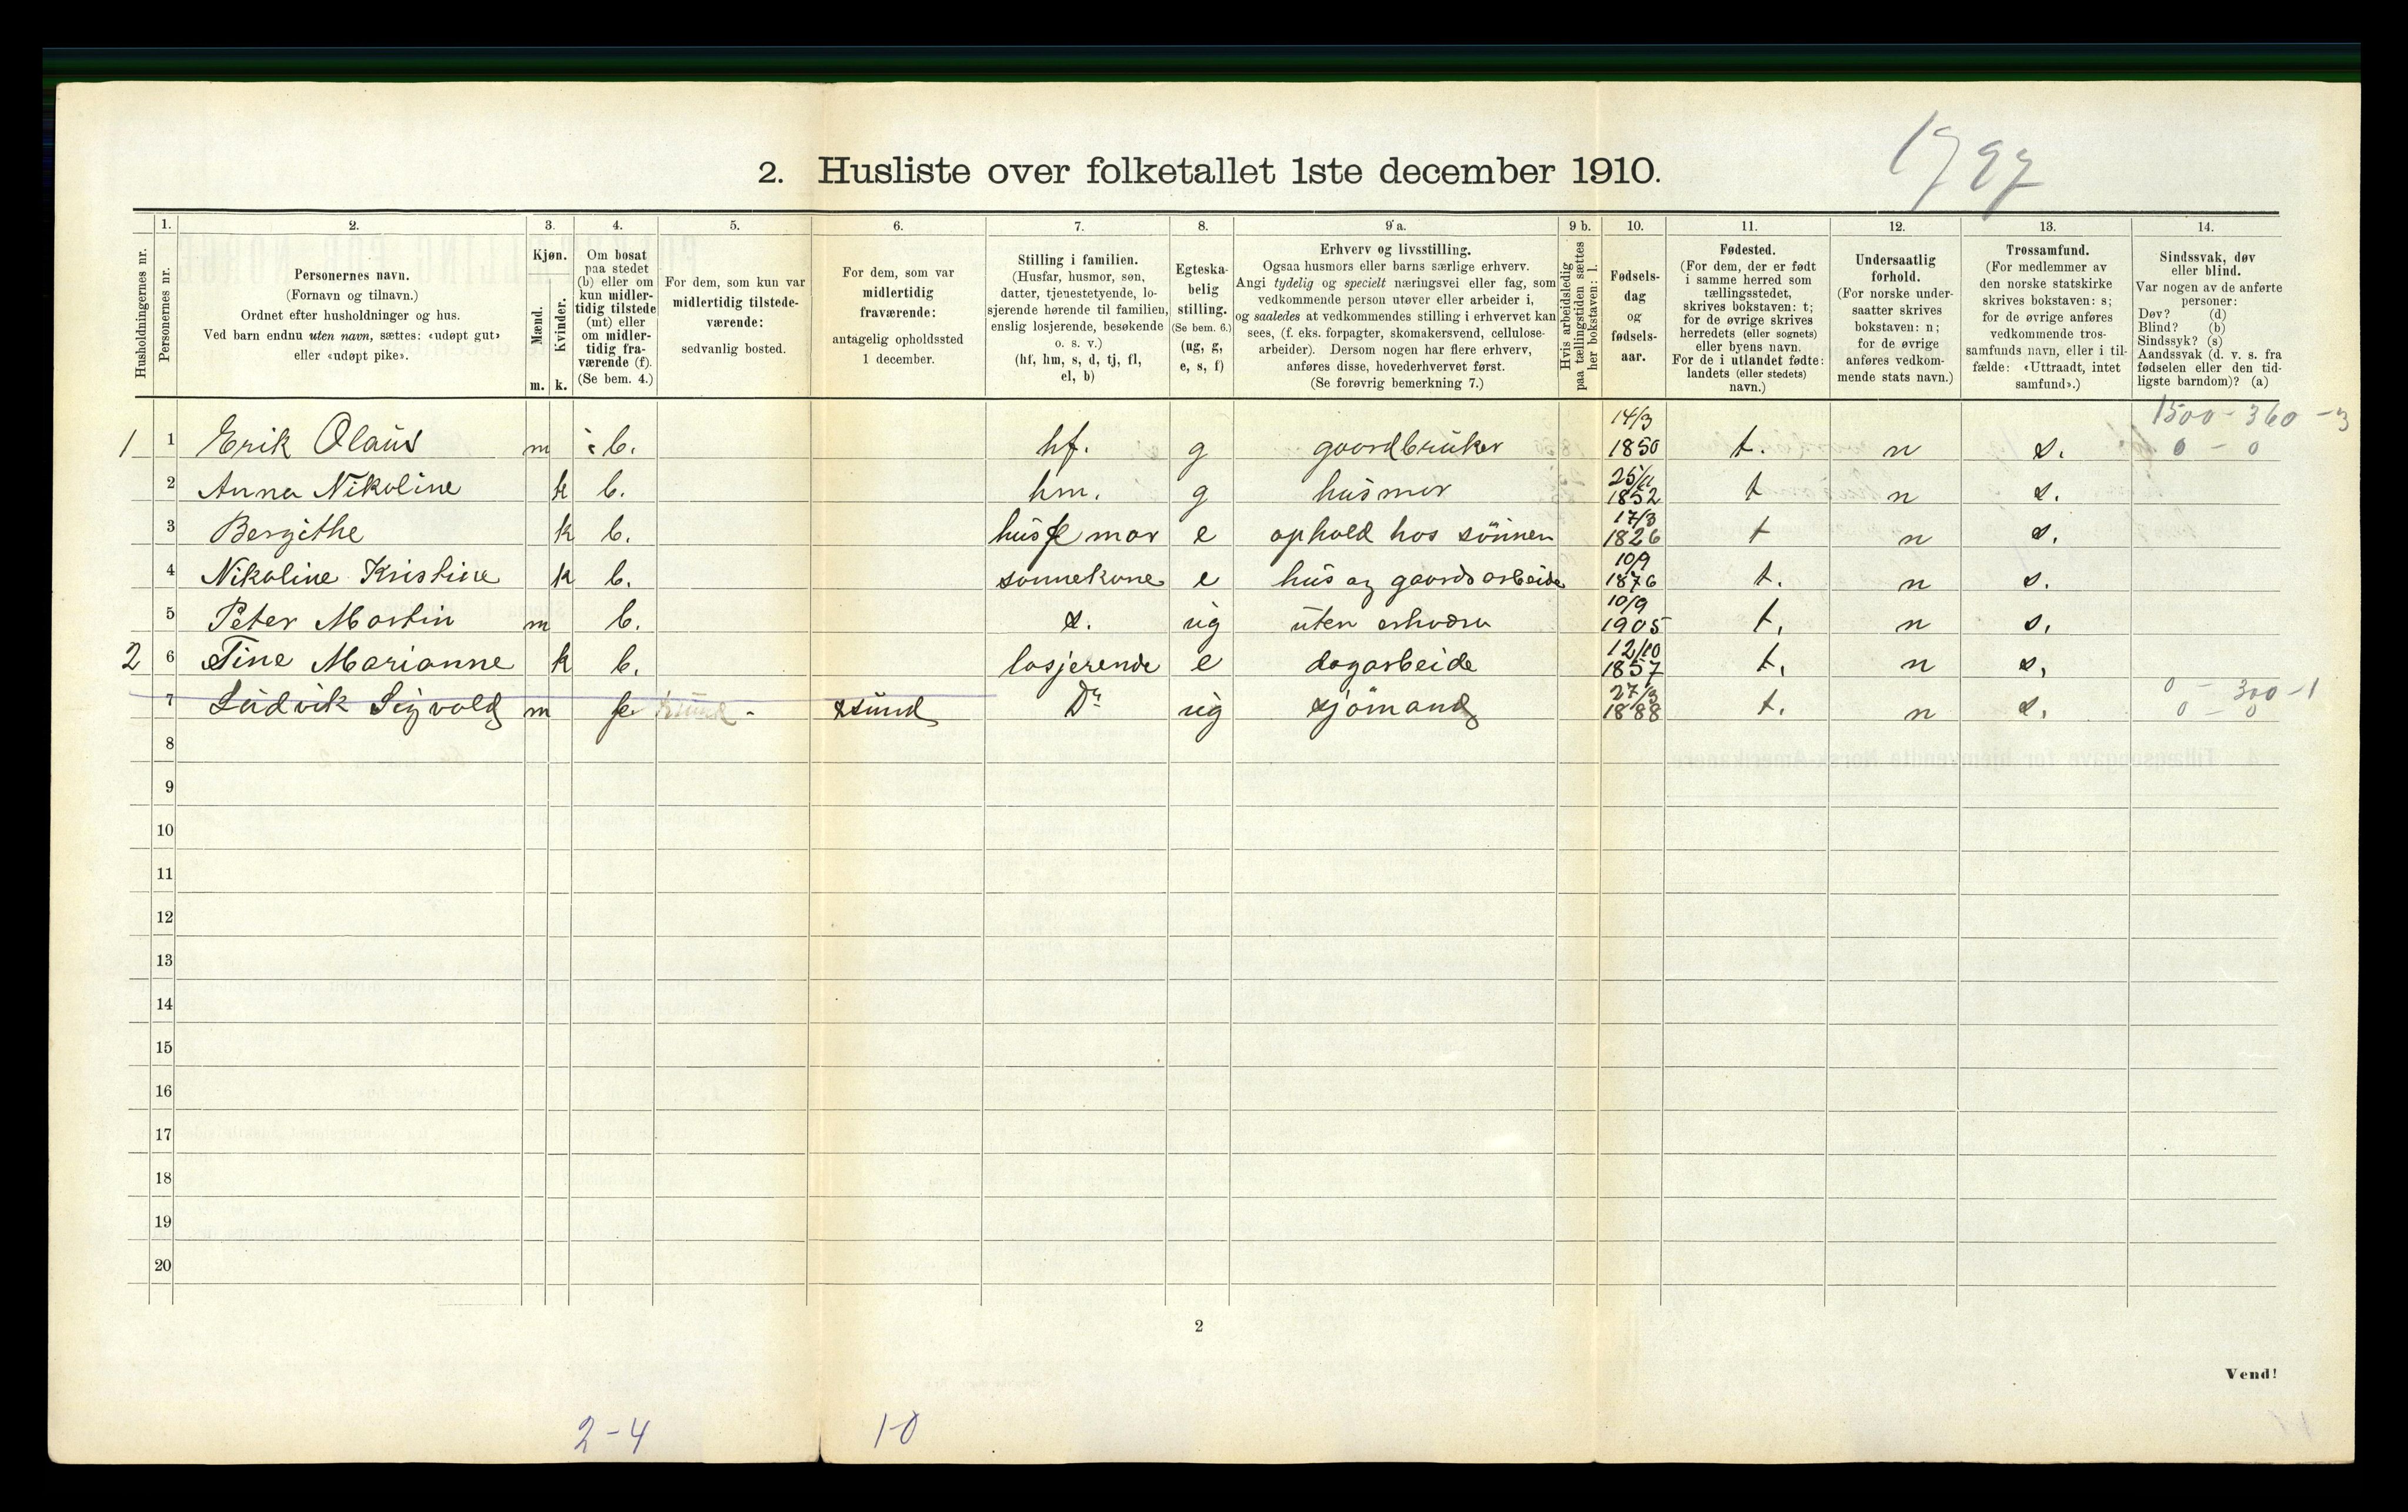 1797
2. Husliste over folketallet 1ste december 1910.
1. 2. 3. 4. 5. 6. 7. 8. 9 a. 9 b. 10. 11. 12. 13. 14.
Husholdningernes nr.
Personernes nr.
Personernes navn.
(Fornavn og tilnavn.)
Ordnet efter husholdninger og hus.
Ved barn endnu uten navn, sættes: «udøpt gut»
eller «udøpt pike».
Kjøn.
Mænd.
Kvinder.
m. k.
Om bosat
paa stedet
(b) eller om
kun midler-
tidig tilstede
(mt) eller
om midler-
tidig fra-
værende (f).
(Se bem. 4.)
For dem, som kun var
midlertidig tilstede-
værende:
sedvanlig bosted.
For dem, som var
midlertidig
fraværende:
antagelig opholdssted
1 december.
Stilling i familien.
(Husfar, husmor, søn,
datter, tjenestetyende, lo-
sjerende hørende til familien,
enslig losjerende, besøkende
o. s. v.)
(hf, hm, s, d, tj, fl,
el, b)
Egteska-
belig
stilling.
(Se bem. 6.)
(ug, g,
e, s, f)
Erhverv og livsstilling.
Ogsaa husmors eller barns særlige erhverv.
Angi tydelig og specielt næringsvei eller fag, som
vedkommende person utøver eller arbeider i,
og saaledes at vedkommendes stilling i erhvervet kan
sees, (f. eks. forpagter, skomakersvend, cellulose-
arbeider). Dersom nogen har flere erhverv,
anføres disse, hovederhvervet først.
(Se forøvrig bemerkning 7.)
Hvis arbeidsledig
paa tællingstiden sættes
her bokstaven: l.
Fødsels-
dag
og
fødsels-
aar.
Fødested.
(For dem, der er født
i samme herred som
tællingsstedet,
skrives bokstaven: t;
for de øvrige skrives
herredets (eller sognets)
eller byens navn.
For de i utlandet fødte:
landets (eller stedets)
navn.)
Undersaatlig
forhold.
(For norske under-
saatter skrives
bokstaven: n;
for de øvrige
anføres vedkom-
mende stats navn.)
Trossamfund.
(For medlemmer av
den norske statskirke
skrives bokstaven: s;
for de øvrige anføres
vedkommende tros-
samfunds navn, eller i til-
fælde: «Uttraadt, intet
samfund».)
Sindssvak, døv
eller blind.
Var nogen av de anførte
personer:
Døv? (d)
Blind? (b)
Sindssyk? (s)
Aandssvak (d. v. s. fra
fødselen eller den tid-
ligste barndom)? (a)
1500 - 360 - 3
1 1 Erik Olaus m b. hf. g gaardbruker 14/3 1850 t. n s. 0 - 0
2 Anna Nikoline k b. hm. g husmor 25/11 1852 t n s.
3 Bergithe k b. husf mor e ophold hos sönnen 17/3 1826 t n s.
4 Nikoline Kristine k b. sonnekone e hus og gaards arbeide 10/9 1876 t. n s.
5 Peter Martin m b. s. ug uten erhverv 10/9 1905 t. n s.
2 6 Tine Marianne k b. losjerende e dagarbeide 12/10 1857 t. n s.
0 - 300 - 1
7 Ludvik Sigvald m f. ksund - ksund Do ug sjömand 27/3 1888 t. n s. 0 - 0
8
9
10
11
12
13
14
15
16
17
18
19
20
2
Vend!
2-4 1-0